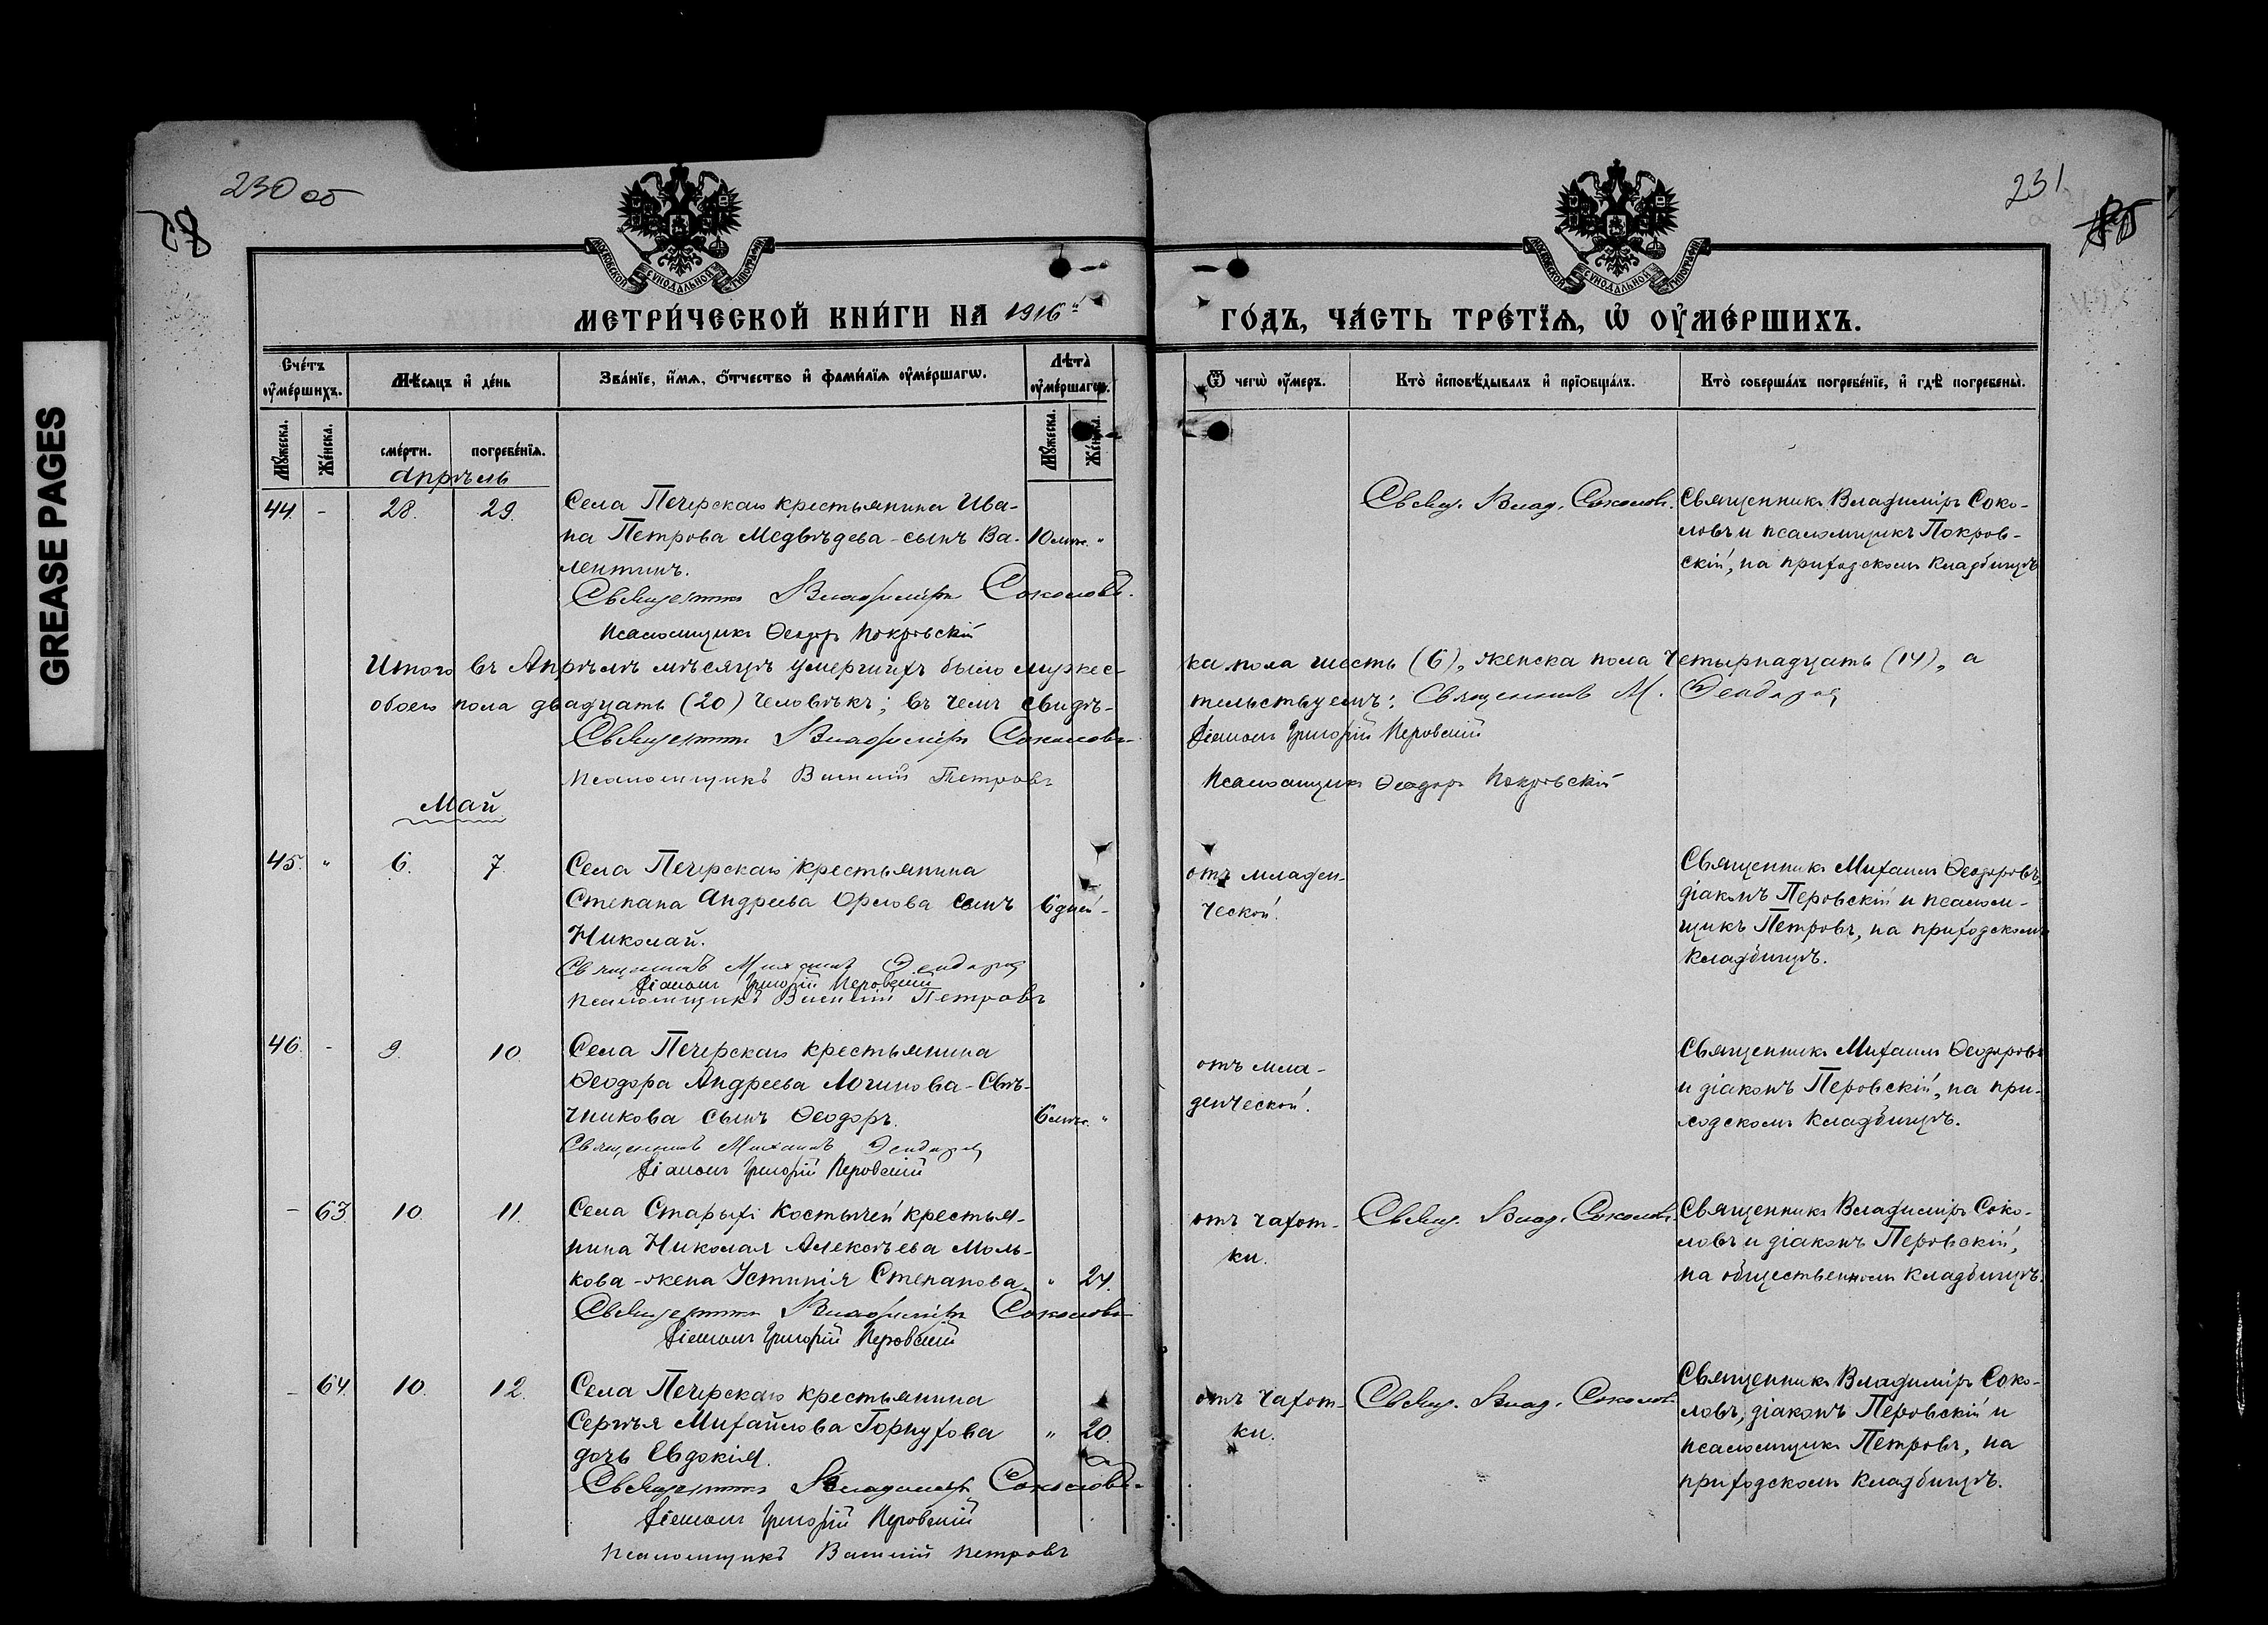 GREASE PAGES
230 об
231
85
МОСКОВСКОЙ СУНОДАЛЬНОЙ ТИПОГРАФІИ
МОСКОВСКОЙ СУНОДАЛЬНОЙ ТИПОГРАФІИ
МЕТРИ́ЧЕСКОЙ КНИ́ГИ НА 1916й
ГО́ДЪ, ЧА́СТЬ ТРЕ́ТЇѦ, Ѡ҆ ОУ҆МЕ́РШИХЪ.
Сче́тъ оу҆ме́ршихъ.
Мѣ́сяцъ и҆ де́нь
Зва́нїе, и҆́мѧ, ѻ҆́тчество и҆ фами́лїѧ оу҆ме́ршагѡ.
Лѣ́та оу҆ме́ршагѡ.
Ѿ чегѡ̀ оу҆́меръ.
Кто̀ и҆сповѣ́дывалъ и҆ прїѡбща́лъ.
Кто̀ соверша́лъ погребе́нїе, и҆ гдѣ̀ погребены̀.
Мꙋ́жеска.
Же́нска.
сме́рти.
погребе́нїѧ.
Мꙋ́жеска.
Же́нска.
Апрѣль
44. - 28. 29.
Села Печерскаго крестьянина Ива-
на Петрова Медвѣдева - сынъ Ва-
лентинъ.
10 мѣс. "
Священникъ Владиміръ Соколовъ.
Псаломщикъ Ѳеодоръ Покровскій
Свящ. Влад. Соколовъ.
Священникъ Владиміръ Соко-
ловъ и псаломщикъ Покров-
скій, на приходскомъ кладбищѣ
Итого въ Апрѣлѣ мѣсяцѣ умершихъ было мужес-
ка пола шесть (6), женска пола четырнадцать (14), а
обоего пола двадцать (20) человѣкъ; въ чемъ свидѣ-
тельствуемъ: Священникъ М. Ѳеодоровъ
Священникъ Владиміръ Соколовъ
Діаконъ Григорій Перовскій
Псаломщикъ Василій Петровъ
Псаломщикъ Ѳеодоръ Покровскій
Май
45. " 6. 7.
Села Печерскаго крестьянина
Степана Андреева Орлова сынъ
Николай.
6 дней -
Священникъ Михаилъ Ѳеодоровъ
Діаконъ Григорій Перовскій
Псаломщикъ Василій Петровъ
отъ младен-
ческой.
Священникъ Михаилъ Ѳеодоровъ,
діаконъ Перовскій и псалом-
щикъ Петровъ, на приходскомъ
кладбищѣ.
46. - 9. 10.
Села Печерскаго крестьянина
Ѳеодора Андреева Логинова - Свѣ-
чникова сынъ Ѳеодоръ.
6 мѣс. "
Священникъ Михаилъ Ѳеодоровъ
Діаконъ Григорій Перовскій
отъ мла-
денческой.
Священникъ Михаилъ Ѳеодоровъ
и діаконъ Перовскій, на при-
ходскомъ кладбищѣ.
- 63. 10. 11.
Села Старыхъ Костычей крестья-
нина Николая Алексѣева Моль-
кова - жена Устинія Степанова.
" 24.
Священникъ Владиміръ Соколовъ
Діаконъ Григорій Перовскій
отъ чахот-
ки.
Свящ. Влад. Соколовъ.
Священникъ Владиміръ Соко-
ловъ и діаконъ Перовскій,
на общественномъ кладбищѣ.
- 64. 10. 12.
Села Печерскаго крестьянина
Сергѣя Михайлова Горнухова
дочь Евдокія.
" 20.
Священникъ Владиміръ Соколовъ.
Діаконъ Григорій Перовскій
Псаломщикъ Василій Петровъ
отъ чахот-
ки.
Свящ. Влад. Соколовъ.
Священникъ Владиміръ Соко-
ловъ, діаконъ Перовскій и
псаломщикъ Петровъ, на
приходскомъ кладбищѣ.